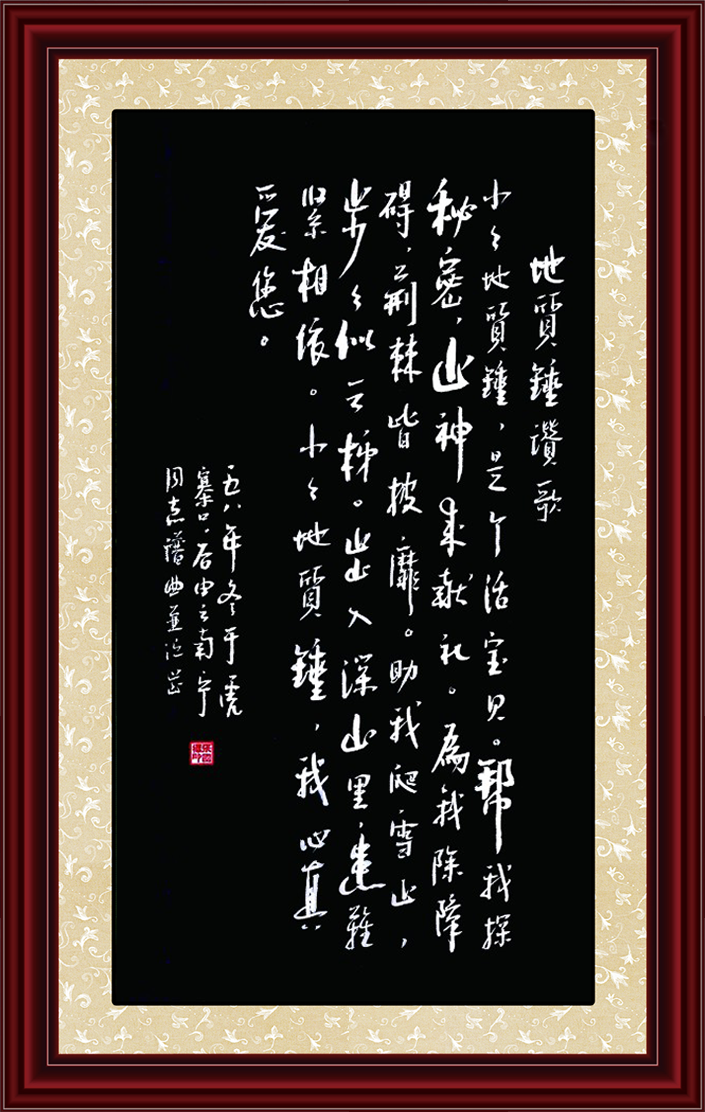 地質錘讚歌
小々地質錘，是个活宝贝。帮我探
秘密，山神来献礼。為我除障
碍，荆棘皆披靡。助我爬雪山，
步々似云梯。出入深山里，患難
紧相依。小々地質錘，我心真
正爱您。
五八年冬于虎
寨口。后由云南宁
同志譜曲並